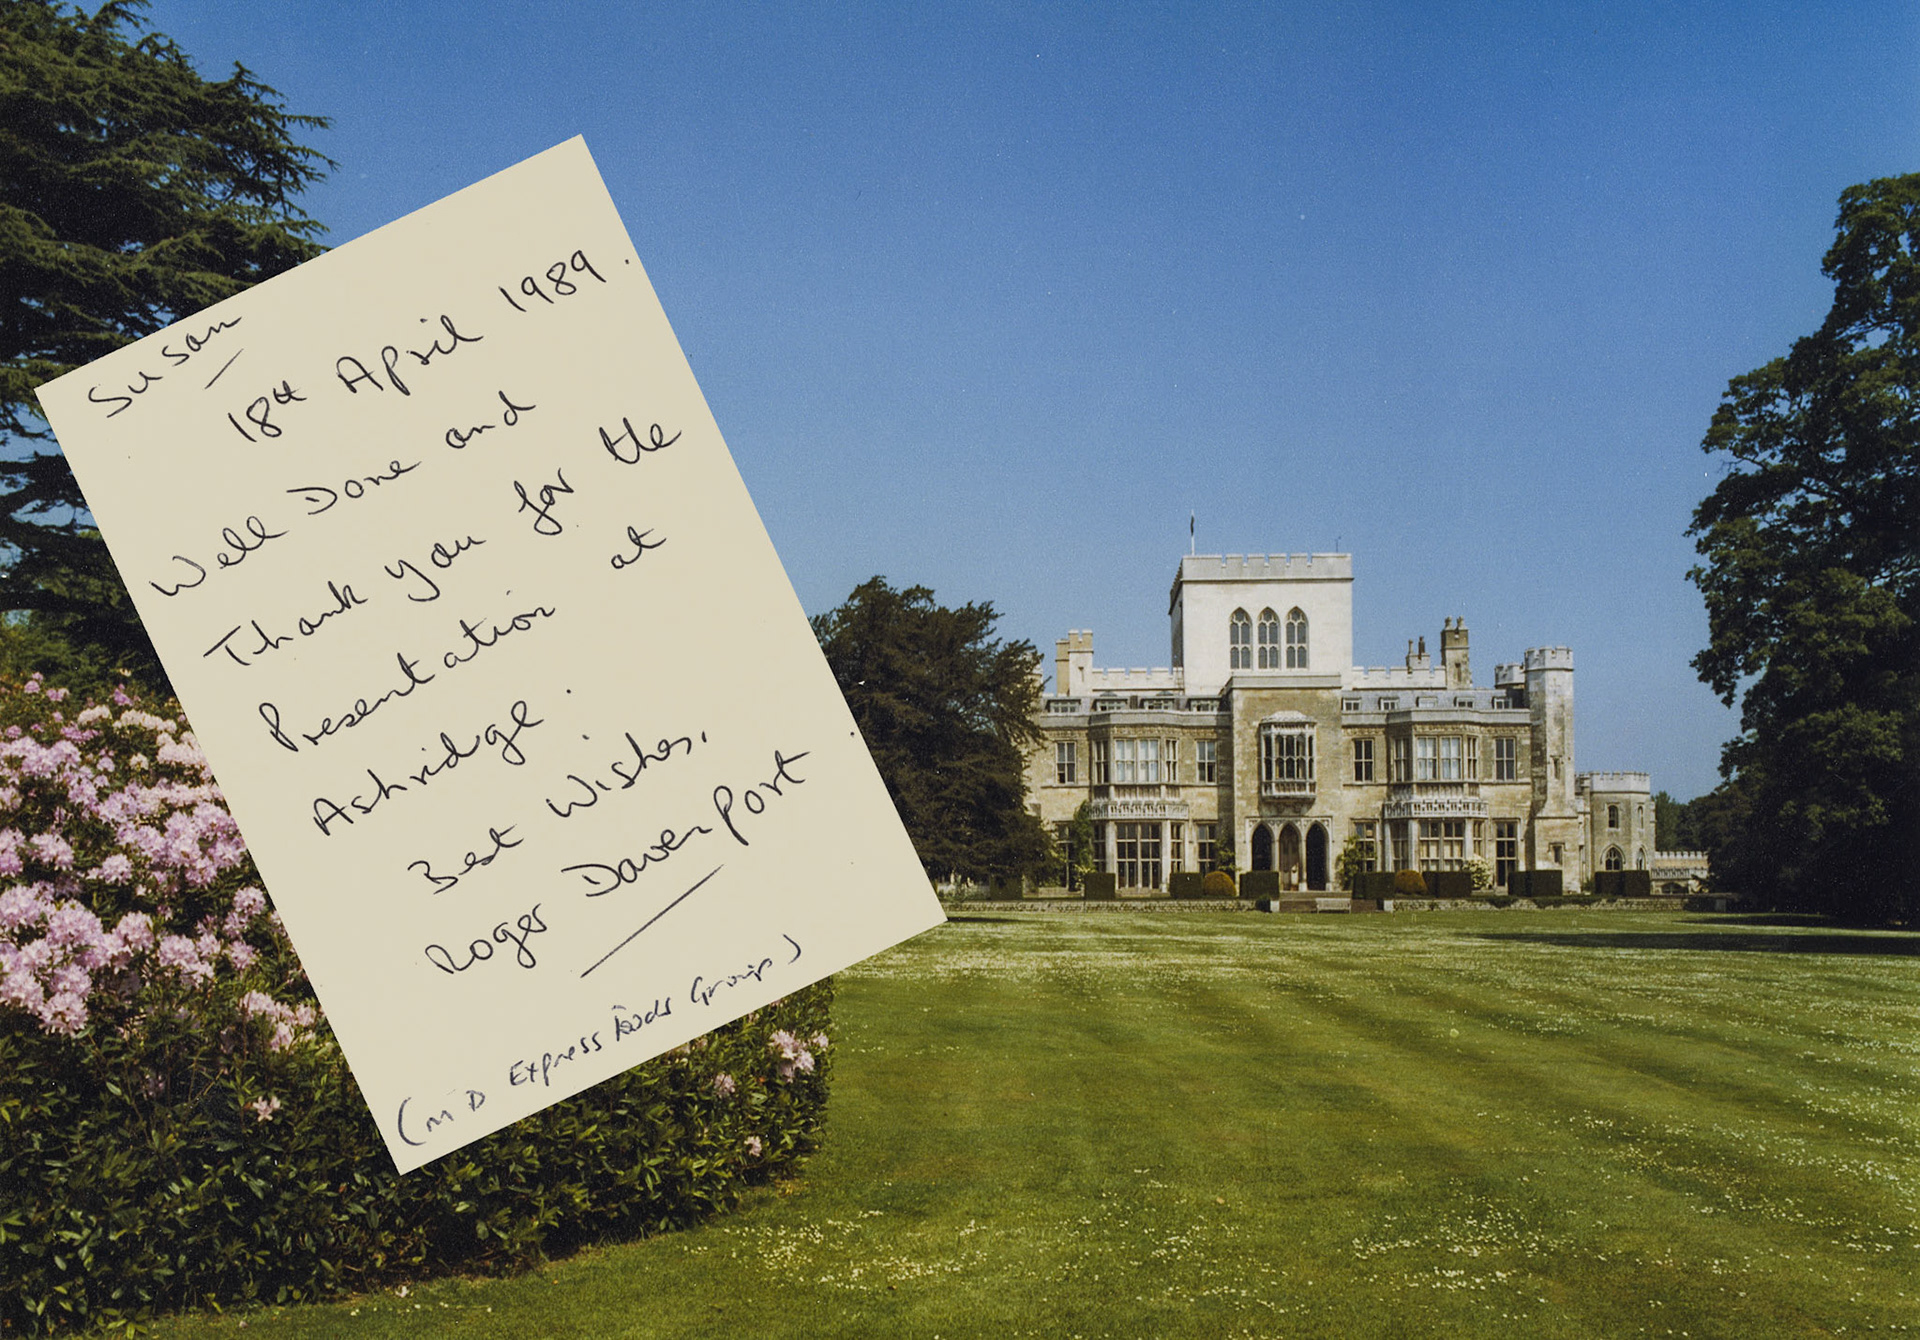 Susan
18th April 1989.
Well Done and
Thank you for the
Presentation at
Ashridge.
Best Wishes,
Roger Davenport
(MD Express Foods Group)